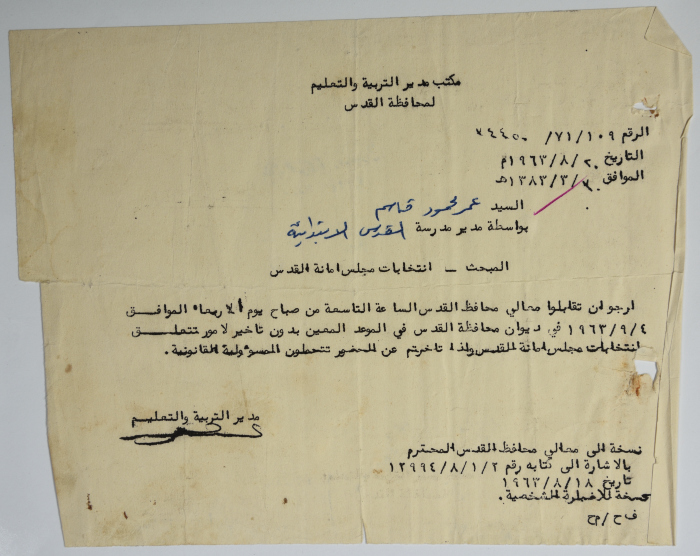 مكتب مدير التربية والتعليم
لمحافظة القدس
الرقم ١٠٩/٧١/ ٣٤٤٥٠
التاريخ ٢٠/٨/١٩٦٣م
الموافق ٣٠/٣/١٣٨٣هـ
السيد عمر محمود قاسم
بواسطة مدير مدرسة القدس الابتدائية
المبحث – انتخابات مجلس امانة القدس
ارجو ان تقابلوا معالي محافظ القدس الساعة التاسعة من صباح يوم الاربعاء الموافق
١٩٦٣/٩/٤ في ديوان محافظة القدس في الموعد المعين بدون تاخير لامور تتعلق
انتخابات مجلس امانة القدس واذا تاخرتم عن الحضور تتحملون المسؤولية القانونية.
مدير التربية والتعليم
نسخة الى معالي محافظ القدس المحترم
بالاشارة الى كتابه رقم ١٢٩٩٤/٨/١/٢
تاريخ ١٩٦٣/٨/١٨
نسخة للاضبارة الشخصية.
ف ح / م ح